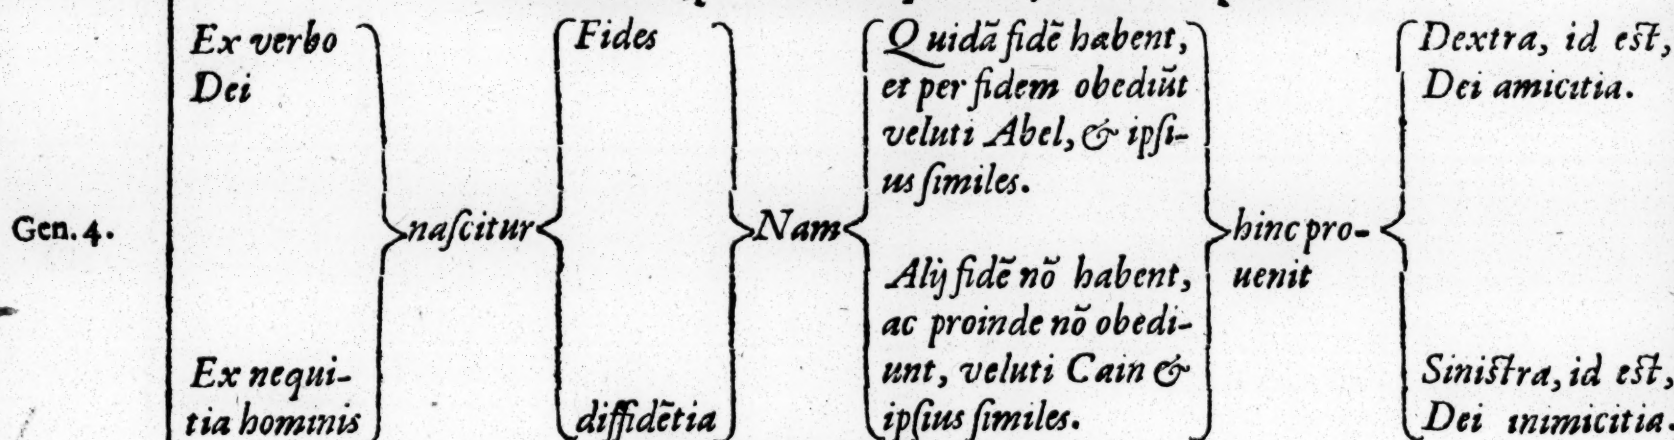 Ex verbo
Dei
Gen. 4.
Ex nequi-
tia hominis
naſcitur
Fides
diffidẽtia
Nam
Quidã fidẽ habent,
et per fidem obediũt
veluti Abel, & ipſi-
us ſimiles.
Alij fidẽ nõ habent,
ac proinde nõ obedi-
unt, veluti Cain &
ipſius ſimiles.
hinc pro-
uenit
Dextra, id eſt,
Dei amicitia.
Siniſtra, id eſt,
Dei inimicitia.